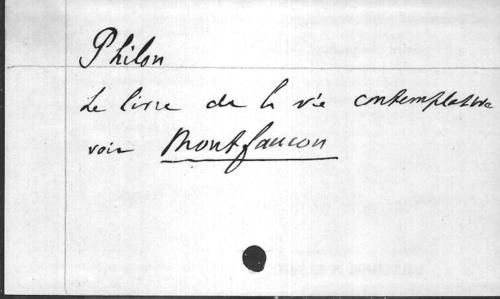 Philon
Le livre de la vie contemplative
voir Montfaucon